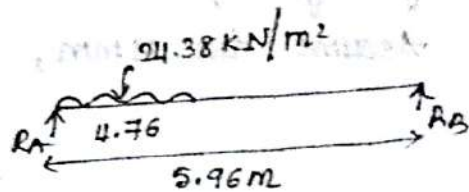 24.38 KN/m²
RA 4.76 RB
5.96m